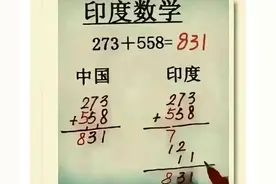 印度数学
273+558=831
中国
273
+558
831
印度
273
+558
7
12
11
831